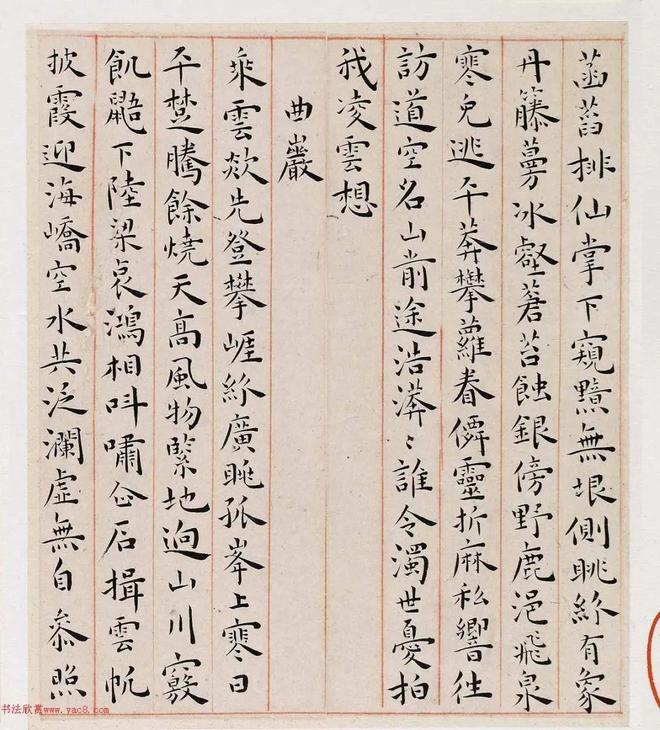 菡萏排仙掌下窺黯無垠側眺紛有象
丹籐蔓冰壑蒼苔蝕銀傍野鹿浥飛泉
寒兔逃平莽攀蘿眷僊靈折麻私響往
訪道空名山前途浩漭〻誰令濁世憂拍
我凌雲想
曲巖
乘雲欻先登攀崕紛廣眺孤峯上寒日
平楚騰餘燒天高風物緊地迥山川竅
飢鼯下陸梁哀鴻相叫嘯企石揖雲帆
披霞迎海嶠空水共泛瀾虛無自叅照
书法欣赏www.yac8.com